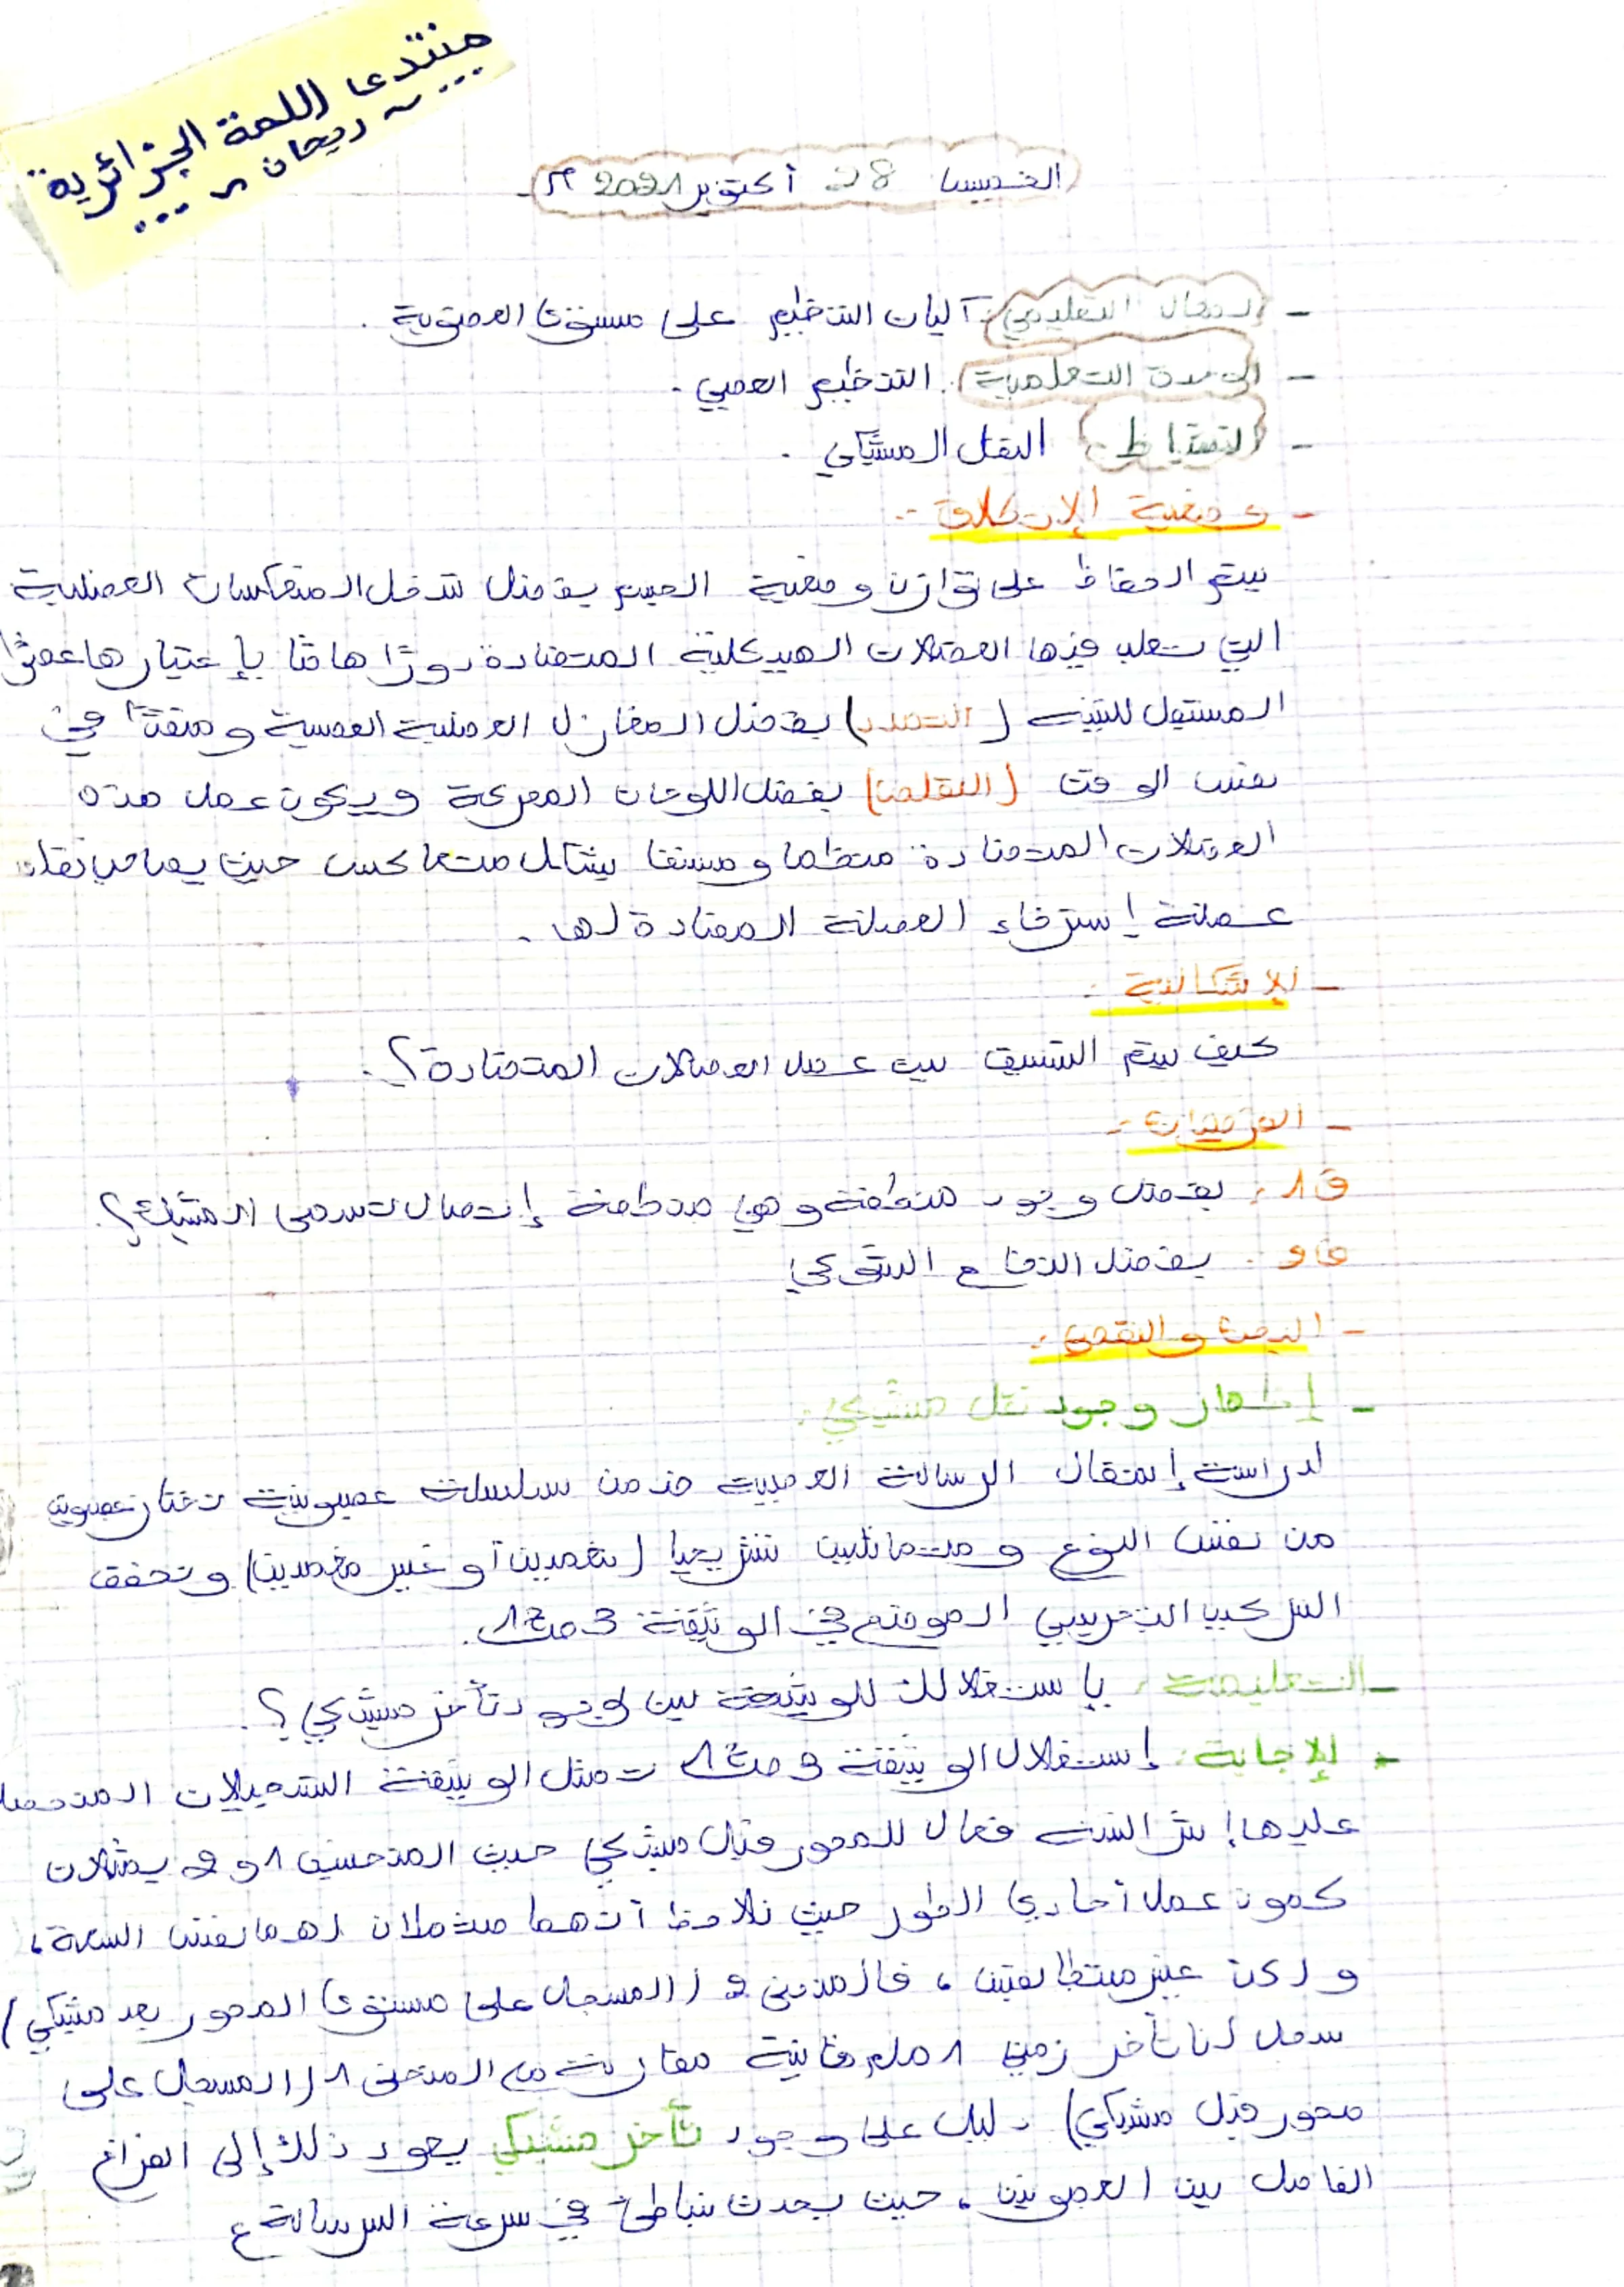 منتدى اللمة الجزائرية
... ~ ريحان ~ ...
الخميس 28 أكتوبر 2021 م.
- المجال التعليمي: آليات التنظيم على مستوى العضوية.
- الوحدة التعلمية: التنظيم العصبي.
- النشاط: النقل المشبكي.
- وضعية الإنطلاق:
يتم الحفاظ على توازن وضعية الجسم بفضل تدخل المنعكسات العضلية
التي تلعب فيها العضلات الهيكلية المتضادة دورًا هامًا بإعتبارها عضوًا
المستقبل للتنبيه (التمدد) بفضل المغازل العضلية العصبية و منفذًا في
نفس الوقت (التقلص) بفضل اللوحات المحركة ويكون عمل هذه
العضلات المتضادة منظما و منسقا بشكل متعاكس حيث يصاحب تقلص
عضلة إسترخاء العضلة المضادة لها.
- الإشكالية:
كيف يتم التنسيق بين عمل العضلات المتضادة؟.
- الفرضيات:
ف1: بفضل وجود منطقة وهي منطقة إتصال تسمى المشبك؟.
ف2: بفضل النخاع الشوكي
- البحث والتقصي:
- إظهار وجود نقل مشبكي:
لدراسة إنتقال الرسالة العصبية ضمن سلسلة عصبونية نختار عصبونين
من نفس النوع و متماثلين تشريحيا (نخمدين أو غير مخمدين) ونحقق
التركيب التجريبي الموضح في الوثيقة 3 ص17.
- التعليمة: بإستغلالك للوثيقة بين وجود تأخر مشبكي؟.
- الإجابة: إستغلال الوثيقة 3 ص17 تمثل الوثيقة التسجيلات المتحصل
عليها إثر التنبيه فعال للمحور قبل مشبكي حيث المنحنيين 1 و 2 يمثلان
كمون عمل أحادي الطور حيث نلاحظ أنهما متماثلان لهما نفس السعة،
ولكن غير متطابقين، فالمنحنى 2 (المسجل على مستوى المحور بعد مشبكي)
سجل لنا تأخر زمني 1 ملم ثانية مقارنة مع المنحنى 1 (المسجل على
محور قبل مشبكي) دليل على وجود تأخر مشبكي يعود ذلك إلى الفراغ
الفاصل بين العصبونين، حيث يحدث تباطئ في سرعة الرسالة ع